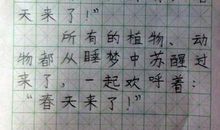 天来了！”
所有的植物、动
物都从睡梦中苏醒过
来了，一起欢呼着：
“春天来了！”